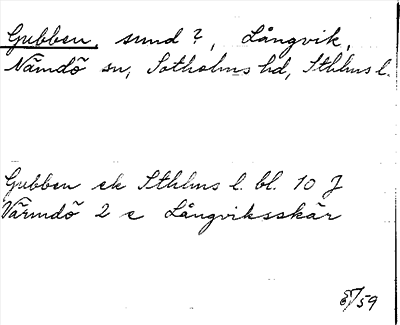 Gubben, sund?, Långvik,
Nämdö sn, Sotholms hd, Sthlms l.
Gubben ek Sthlms l. bl. 10 J
Värmdö 2 c Långviksskär